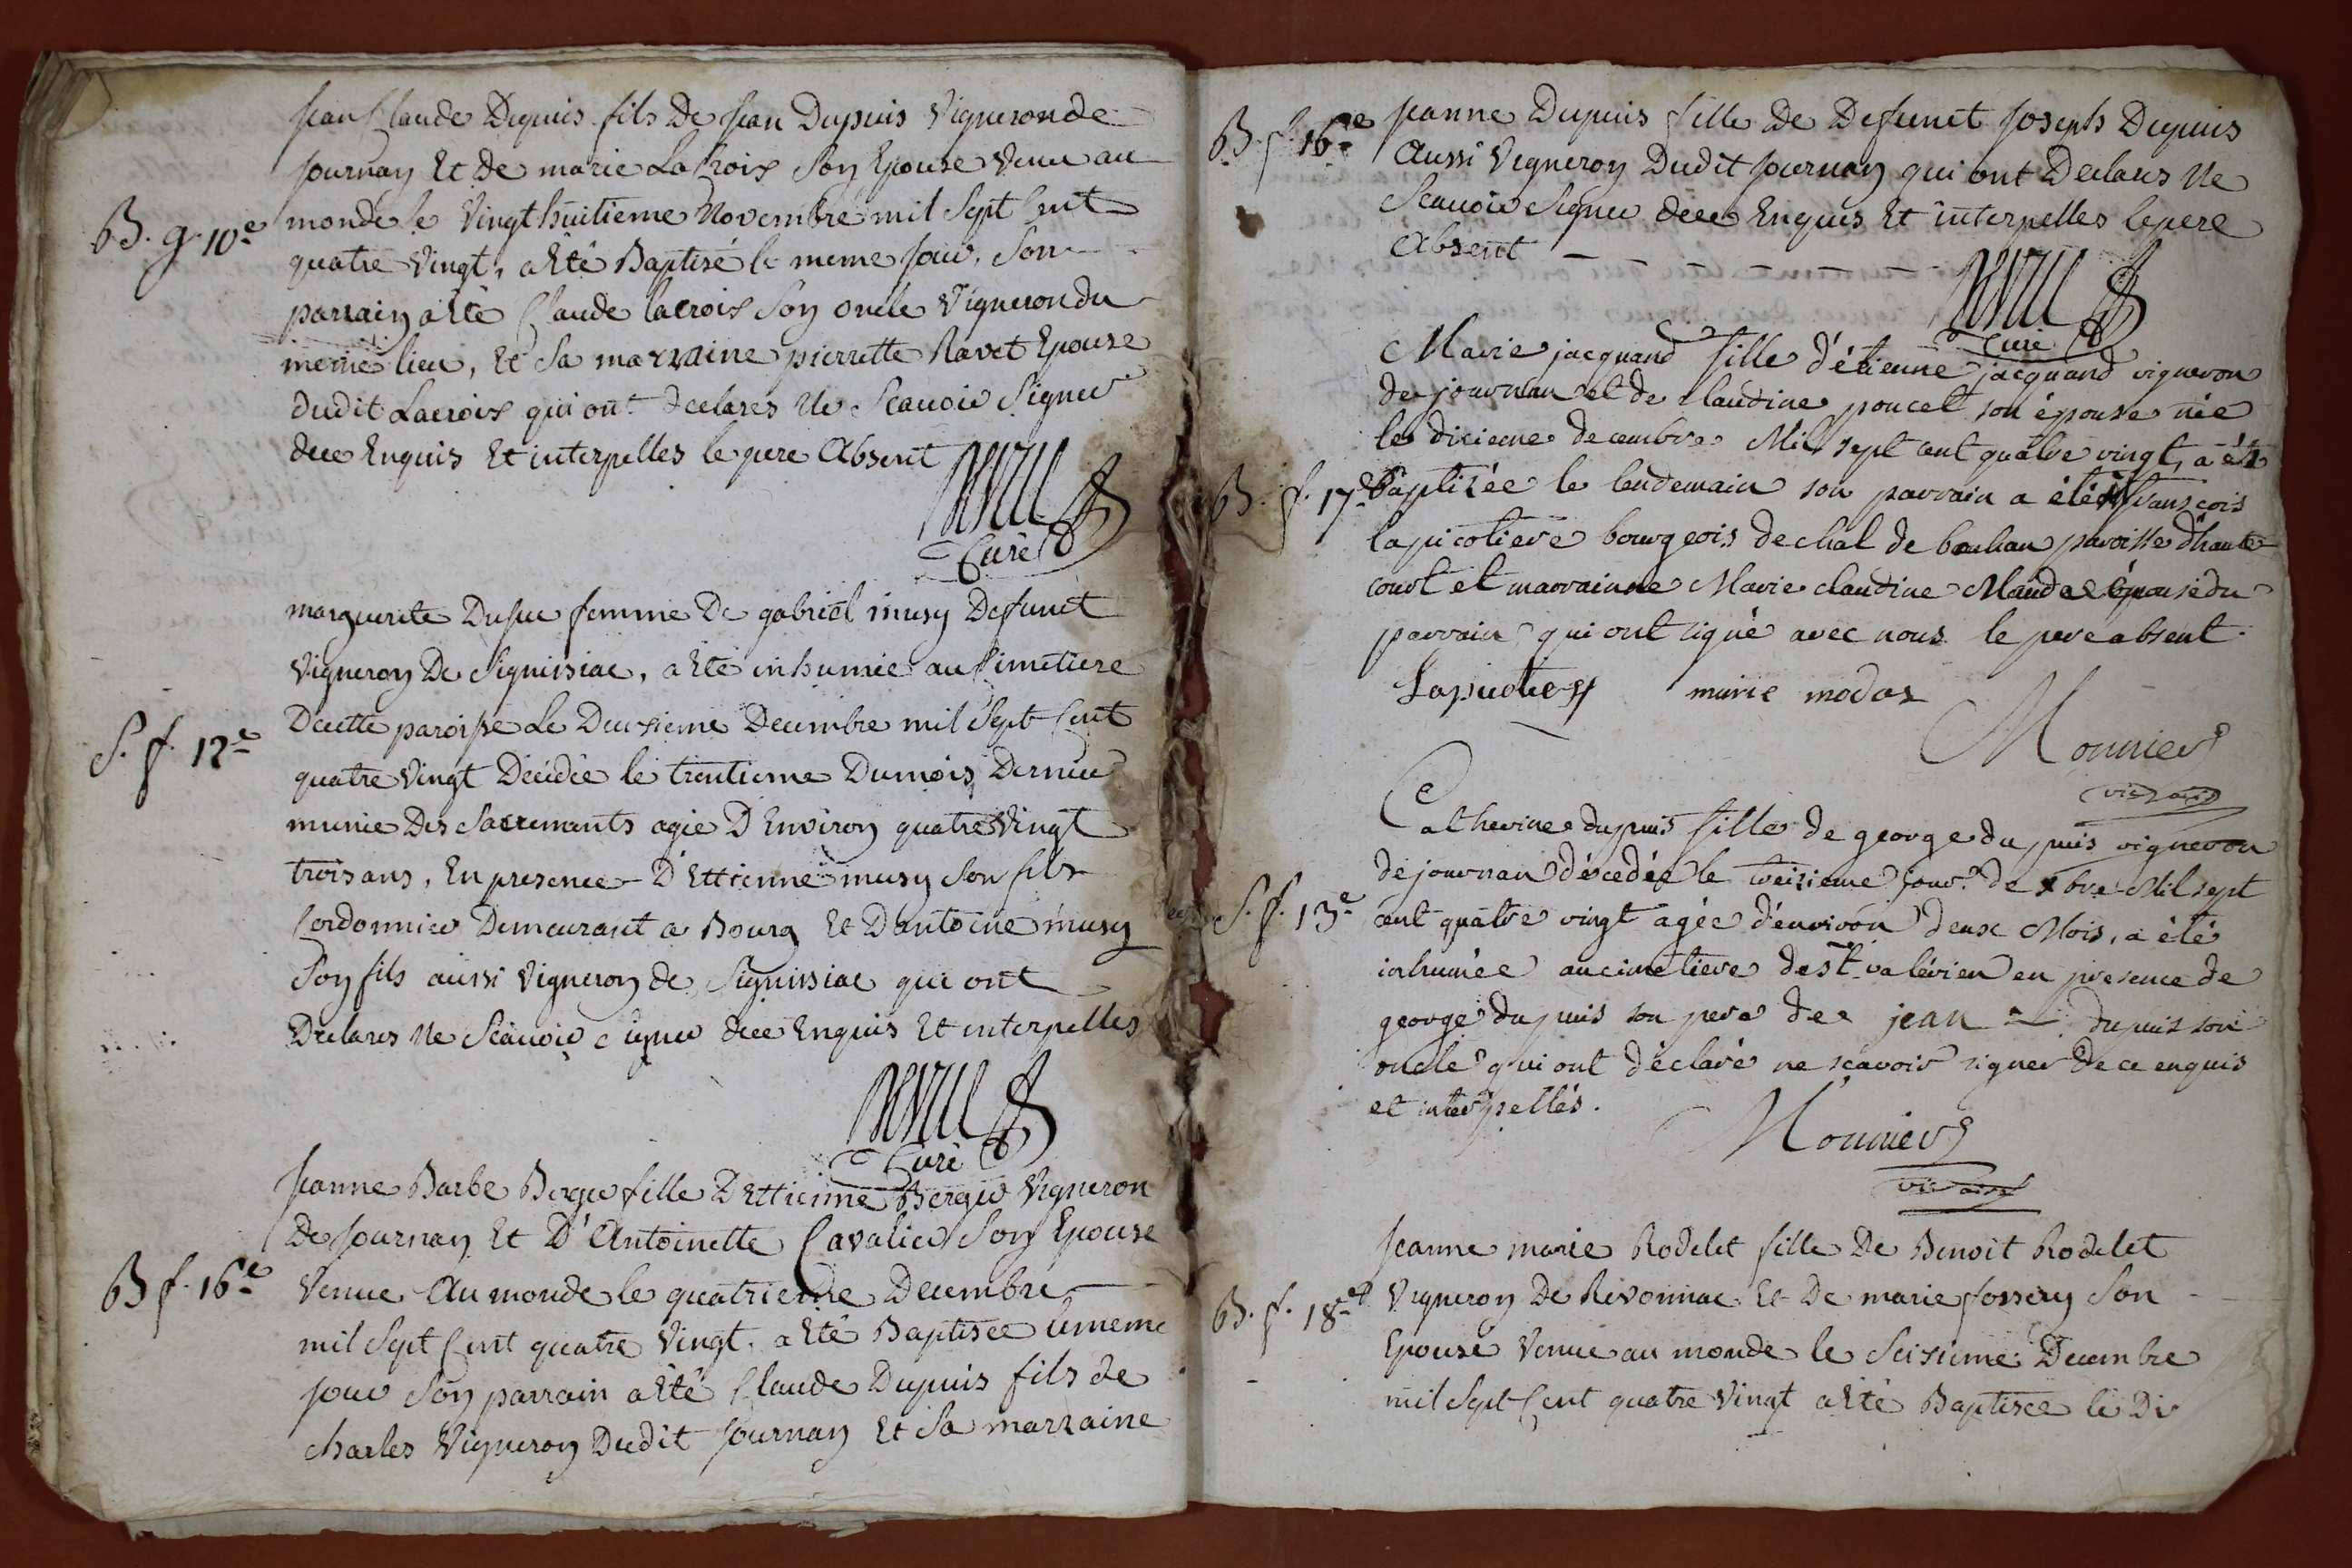 Jean Claude Dupuis fils De Jean Dupuis Vigneron de
Journan Et De marie LaCroix Son Epouse Venu au
B. g. 10e
monde le Vingt huitieme Novembre mil Sept Cent
quatre Vingt, a Eté Baptisé le meme Jour, Son
parrain a Eté Claude lacroix Son oncle Vigneron du
meme lieu, Et Sa marraine pierrette Ravet Epouse
dudit Lacroix qui ont declarés Ne Scavoir Signer
dece Enquis Et interpelles le pere Absent
Curé
marguerite Dufue femme De gabriel musy Defunct
Vigneron De Signissiac, a Eté inhumée au Cimetiere
S. f. 12e
Decette paroisse Le Deuxieme Decembre mil Sept Cent
quatre Vingt Décédée le trentieme Dumois Dernier
munie Des Sacremants agée D'Environ quatre Vingt
trois ans, En presence D'Ettienne musy Son fils
Cordonnier Demeurant a Bourg Et D'antoine musy
Son fils aussi Vigneron de Signissiac qui ont
Declarés Ne Scavoir Signer dece Enquis Et interpelles
Curé
Jeanne Barbe Berger fille D'Ettienne Berger Vigneron
De Journan Et D'Antoinette Cavalier Son Epouse
B f. 16e
Venue Au monde le quatrieme Decembre
mil Sept Cent quatre Vingt, a Eté Baptisée cememe
Jour Son parrain a Eté Claude Dupuis fils de
charles Vigneron Dudit Journan Et Sa marraine
B. f. 16e
Jeanne Dupuis fille De Defunct Joseph Dupuis
Aussi Vigneron Dudit Journan qui ont Declarés Ne
Scavoir Signer dece Enquis Et interpelles le pere
Absent
Curé
Marie jacquand fille d'étienne jacquand vigneron
de journan et de claudine poncet son épouse née
le dixieme decembre Mil sept cent quatre vingt, a été
B. f. 17e
baptisée le lendemain son parrain a été françois
lapicotiere bourgeois de chal de bouhan paroisse d'haute
court et marrainne Marie claudine Maudas épouse du
parrain qui ont signé avec nous le pere absent.
Lapicotiere marie modas
Monnier
vicaire
Catherine dupuis fille de george dupuis vigneron
de journan décedée le treizieme jour de xbre Mil sept
S. f. 13e
cent quatre vingt agée d'environ deux Mois, a été
inhumée au cimetiere de st valérien en presence de
george dupuis son pere de jean dupuis son
oncle qui ont déclaré ne scavoir signer de ce enquis
et interpellés.
Monnier
vicaire
Jeanne marie Rodelet fille De Benoit Rodelet
B. f. 18e
Vigneron De Rivonnac Et De marie fossery Son
Epouse Venue au monde le Seisieme Decembre
mil Sept Cent quatre Vingt a Eté Baptisée le Di